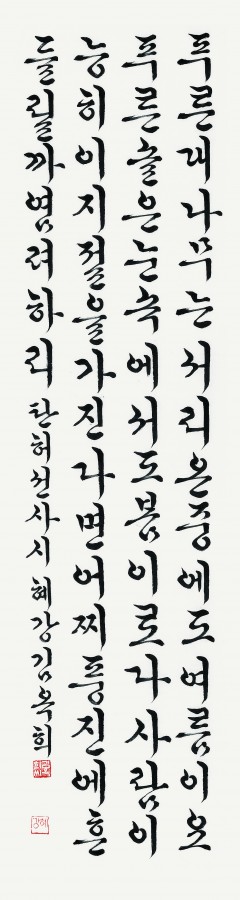 푸른대나무는서리온중에도여름이오
푸른솔은눈속에서도봄이로다사람이
능히이지절을가진다면어찌풍진에흔
들릴까염려하리 탄허선사시 혜강김옥희